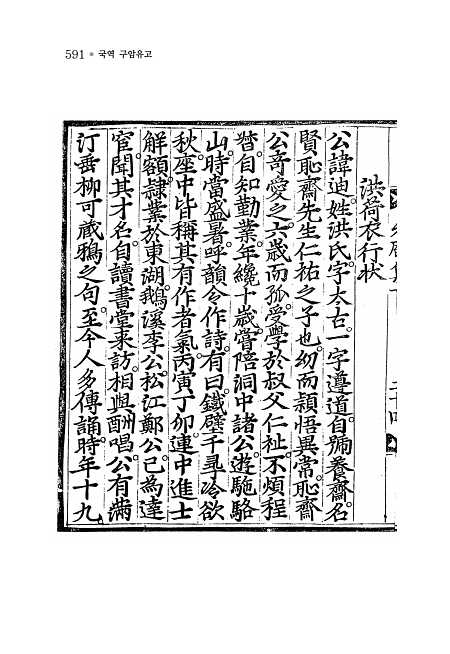 591 국역 구암유고
洪荷衣行状
公諱迪。姓洪氏。字太古。一字遵道。自號養齋。名
賢恥齋先生仁祐之子也。幼而頴悟異常。恥齋
公奇愛之。六歲而孤。受學於叔父仁祉。不煩程
督。自知勤業。年纔十歲。嘗陪洞中諸公。遊駞駱
山。時當盛暑。呼韻令作詩。有曰。鐵壁千尋冷欲
秋。座中皆稱其有作者氣。丙寅丁卯。連中進士
解額。隷業於東湖。鵝溪李公。松江鄭公。已為達
官。聞其才名。自讀書堂來訪。相與酬唱。公有滿
汀垂柳可藏鴉之句。至今人多傳誦。時年十九。